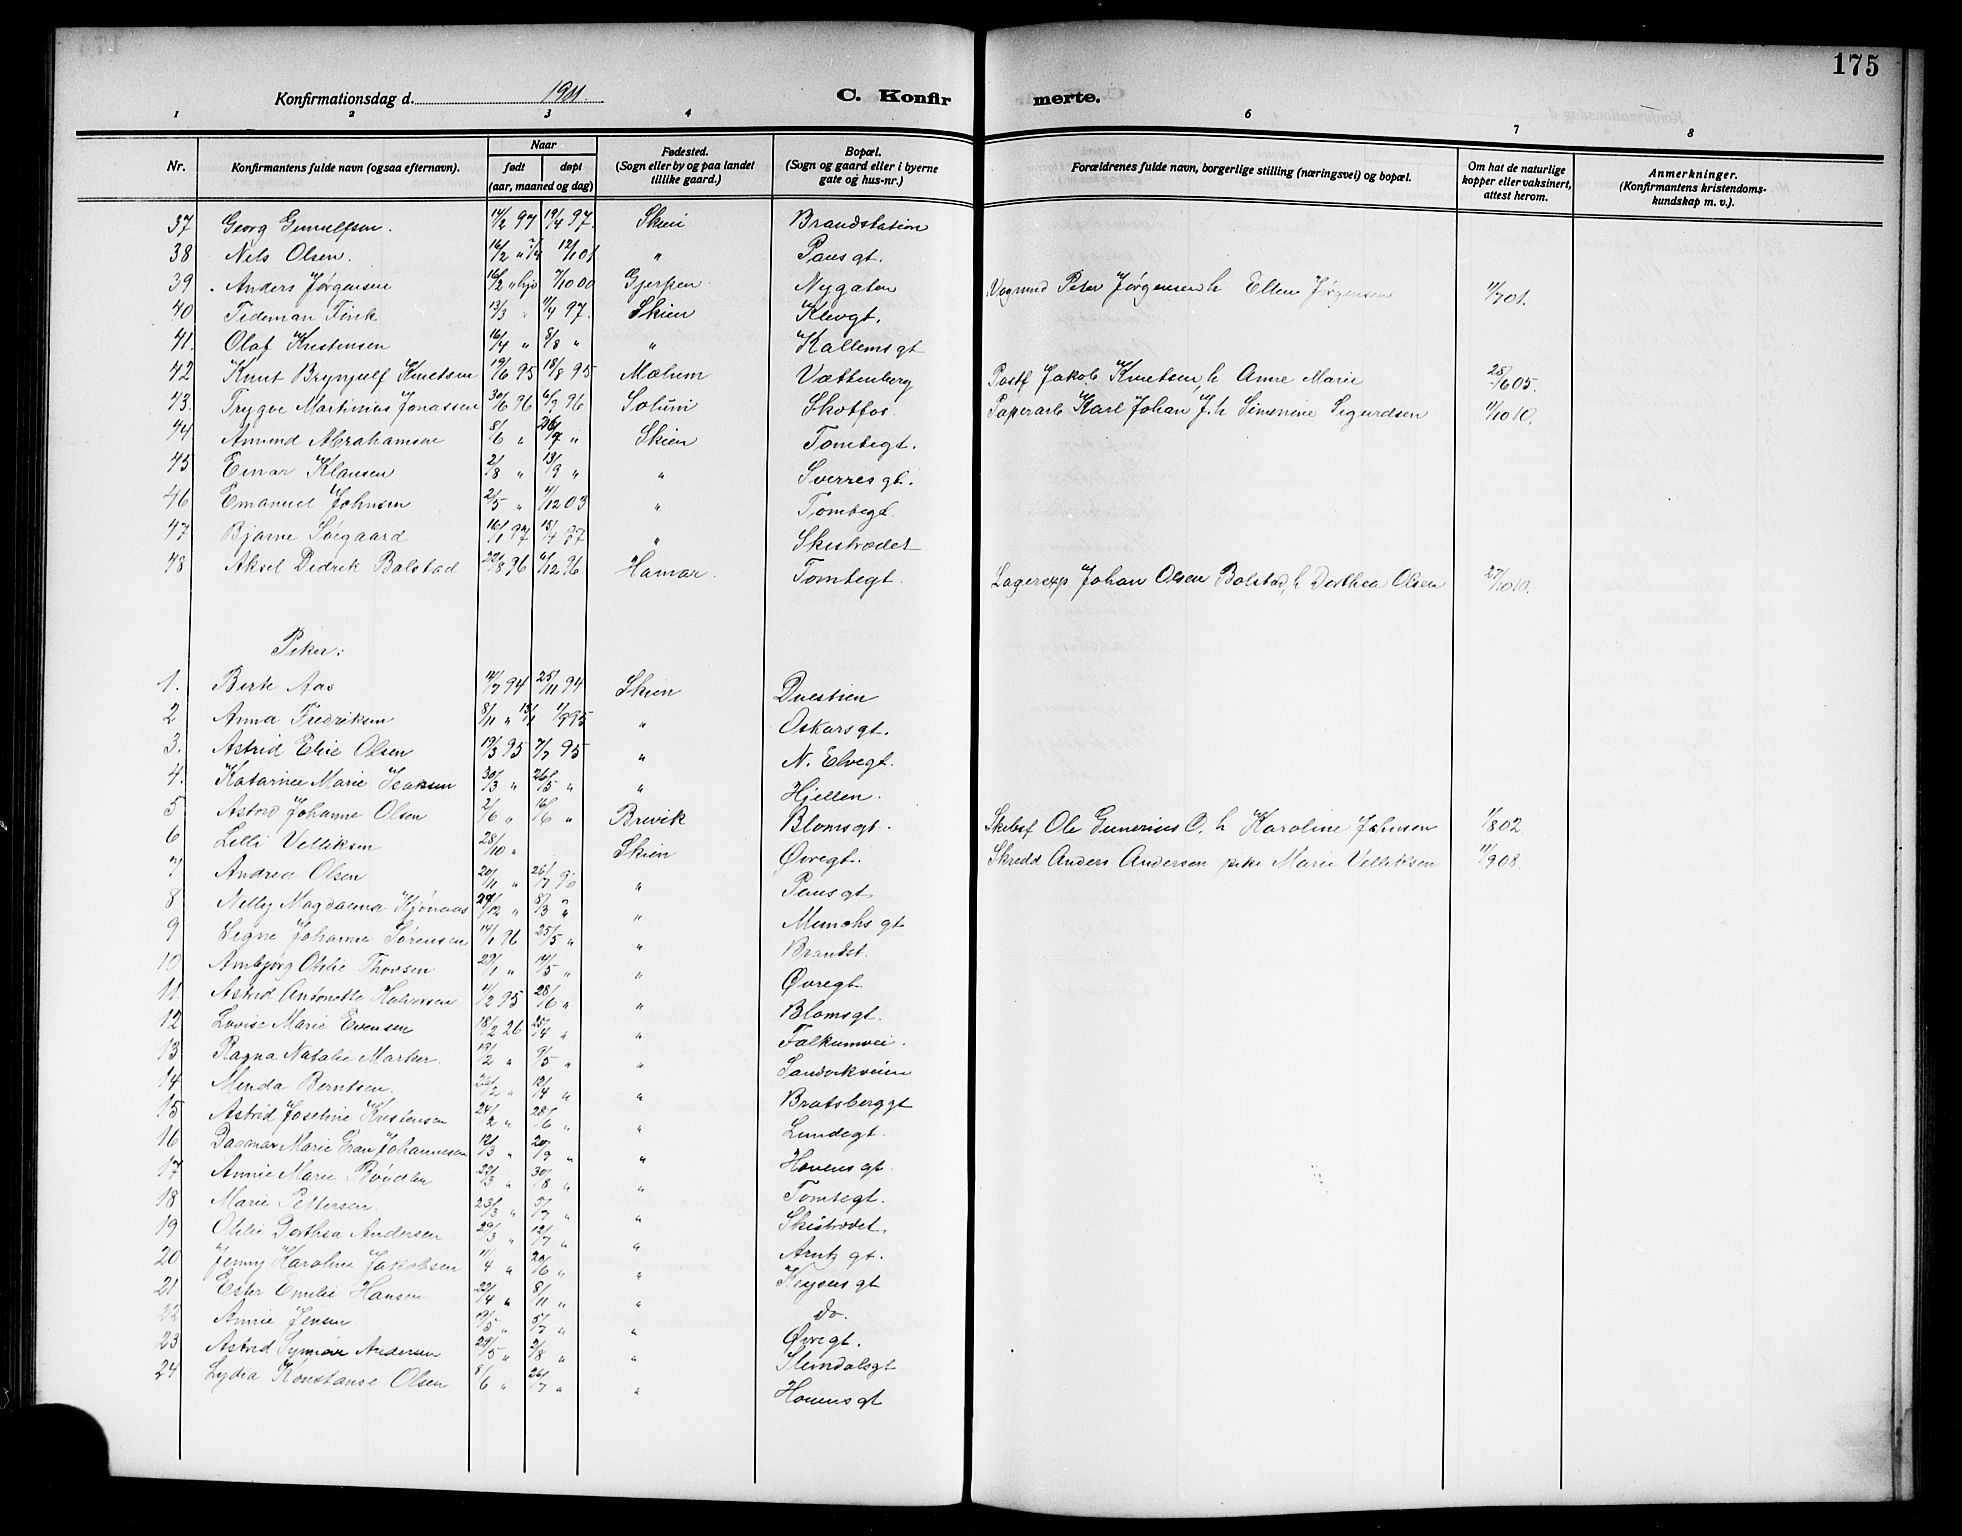 175
Konfirmationsdag d. 1911. C. Konfir merte.
1 2 3 4 6 7 8
Nr. Konfirmantens fulde navn (ogsaa efternavn). Naar født døpt (aar, maaned og dag) Fødested. (Sogn eller by og paa landet tillike gaard.) Bopæl. (Sogn og gaard eller i byerne gate og hus-nr.) Forældrenes fulde navn, borgerlige stilling (næringsvei) og bopæl. Om hat de naturlige kopper eller vaksinert, attest herom. Anmerkninger. (Konfirmantens kristendomskundskap m. v.).
37 Georg Gunulfsen. 14/2 97 19/4 97. Skien Brandstation
38 Nils Olsen. 16/2 " 12/1 01 " Pausgt.
39 Anders Jørgensen 16/2 " hjd 7/10 00 Gjerpen Nygaten Vognmd Peter Jørgensen h Ellen Jørgensen 11/7 01.
40 Tideman Fink 13/3 " 11/4 97. Skien Klevgt.
41. Olaf Kristensen 16/4 " 8/8 " " Kallemsgt
42 Knut Brynjulf Knutsen 19/6 95 18/8 95 Mælum Vættenberg Postf Jakob Knutsen, h Anne Marie 28/6 05.
43. Trygve Martinius Jonassen 30/6 96 6/9 96 Solum Skotfos Paperarb Karl Johan J. h Simenine Sigurdsen 11/10 10.
44. Amund Abrahamsen 8/6 " 20/9 " Skien Tomtegt.
45 Einar Klausen 2/8 " 13/9 " " Sverresgt.
46 Emanuel Johnsen 2/5 " 11/12 03 " Tomtegt.
47 Bjarne Søegaard 16/1 97 15/4 97 " Skistrædet
48 Aksel Didrik Bolstad 22/8 96 6/12 96 Hamar. Tomtegt. Lagerexp Johan Olsen Bolstad, h Dorthea Olsen 27/10 10.
Piker:
1. Berte Aas 14/7 94 25/11 94 Skien Duestien
2 Anna Fredriksen 8/11 " 1/9 95 " Oskarsgt.
3. Astrid Elvie Olsen 19/3 95 7/7 95 " N. Elvegt.
4. Katarine Marie Isaksen 30/3 " 26/5 " " Hjellen.
5 Astrid Johanne Olsen 2/6 " 16/6 " Brevik Blomsgt. Skibsf Ole Gunerius O. h Karoline Johnsen 1/8 02
6 Lilli Velliksen 28/10 " Skien Øvregt. Skredd Anders Andersen pike Marie Velliksen 11/9 08.
7 Andrea Olsen 20/11 " 26/7 96 " Pausgt
8 Nelly Magdalena Kjønaas 29/12 " 8/3 " " Munchs gt
9 Signe Johanne Sørensen 14/1 96 25/5 " " Brandst.
10 Arnbjørg Otilie Thovsen 29/1 " 14/5 " " Øvregt.
11. Astrid Antonette Halvorsen 11/2 95 28/6 " " Blomsgt.
12 Lovise Marie Evensen 18/2 26 25/4 " " Falkumvei.
13 Ragna Natalie Marker. 19/2 " 9/5 " " Sandvikveien
14 Minda Berntsen. 22/2 " 12/4 " " Bratsberggt
15 Astrid Josefine Kristensen 24/2 " 28/6 " " Lundegt.
16 Dagmar Marie Gran Johannesen 12/3 " 20/9 " " Hovensgt
17 Annie Marie Bøydler 22/3 " 30/8 " " Tomtegt.
18 Marie Pettersen 23/3 " 5/7 " " Skistrædet
19 Otilie Dorthea Andersen 29/3 " 12/7 " " Arntz gt.
20 Jenny Karoline Jakobsen 11/4 " 20/6 " " Keysersgt
21 Ester Emilie Hansen 22/4 " 8/11 " " do.
22 Annie Jensen 19/5 " 5/7 " " Øvregt.
23 Astrid Andersen 29/5 " 2/8 " " Slemdalsgt
24 Lydia Konstanse Olsen 8/6 " 26/7 " " Hovensgt